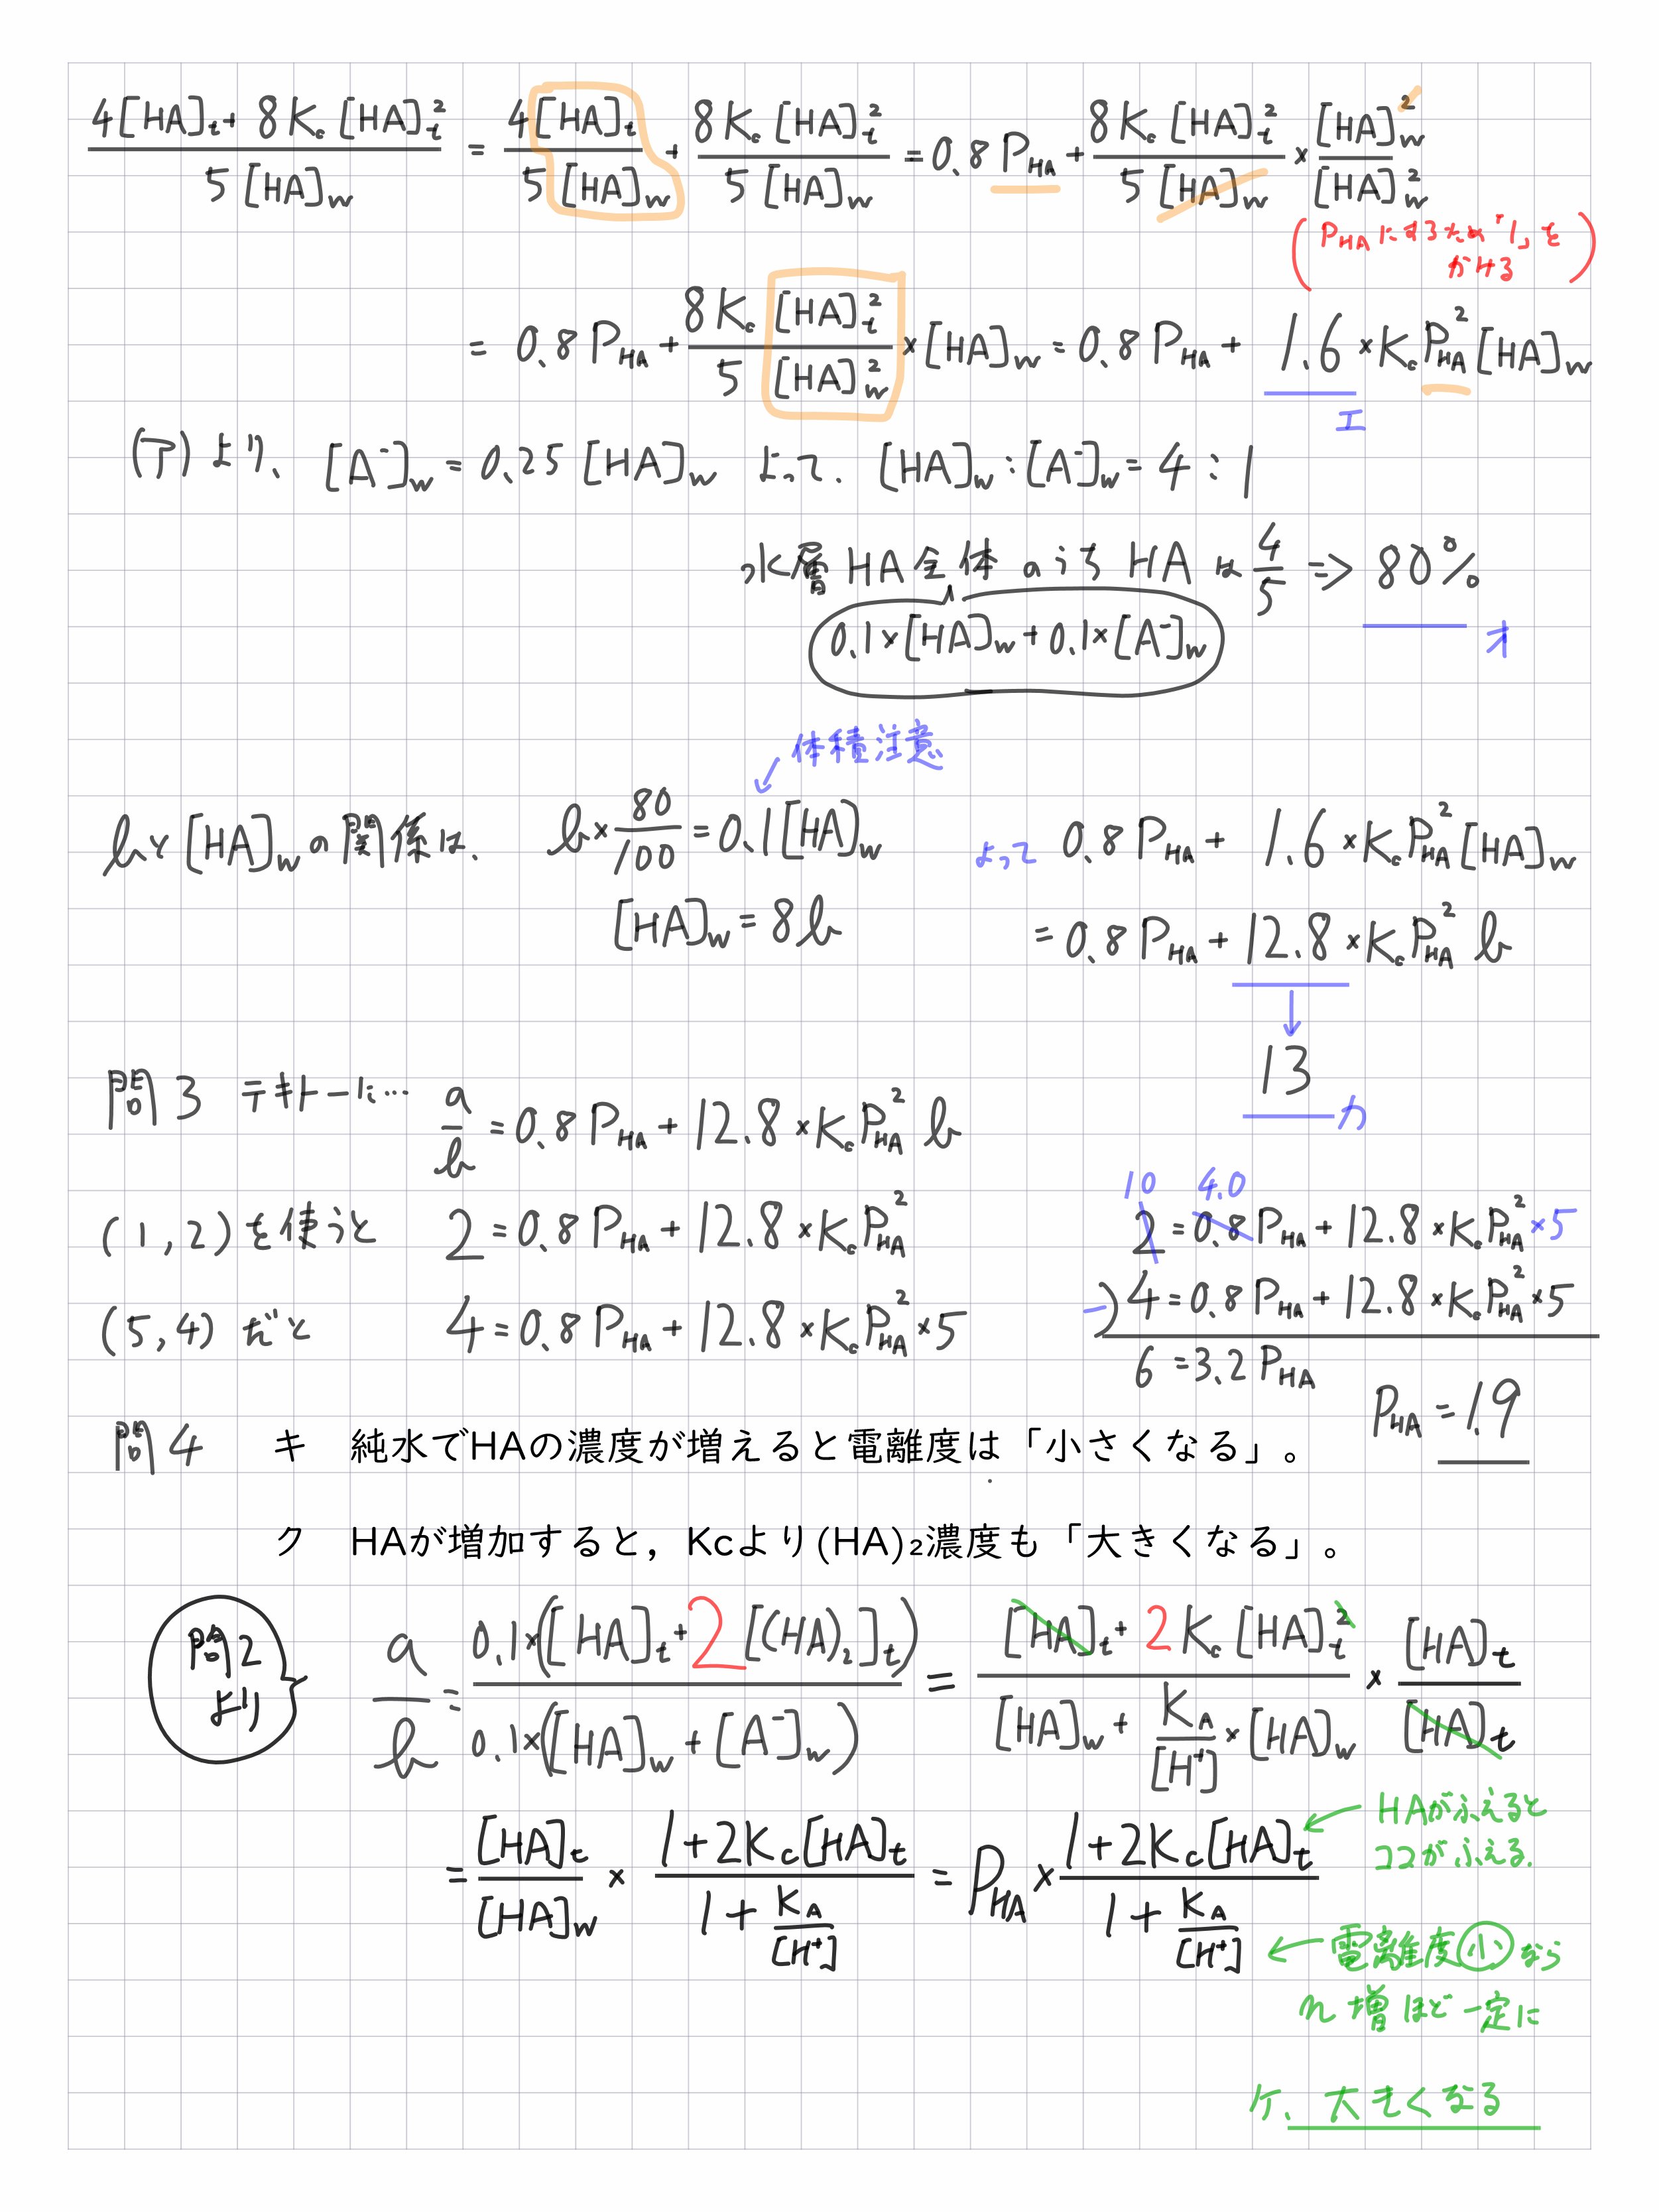 4[HA]t + 8Kc[HA]t² / 5[HA]w = 4[HA]t / 5[HA]w + 8Kc[HA]t² / 5[HA]w = 0.8 PHA + 8Kc[HA]t² / 5[HA]w × [HA]w² / [HA]w²
(PHAにするため「1」を
かける)
= 0.8 PHA + 8Kc[HA]t² / 5[HA]w² × [HA]w = 0.8 PHA + 1.6 × Kc PHA² [HA]w
エ
(ア)より、 [A⁻]w = 0.25 [HA]w よって、 [HA]w : [A⁻]w = 4 : 1
水層HA全体のうちHAは 4/5 => 80%
オ
0.1×[HA]w + 0.1×[A⁻]w
体積注意
bと[HA]wの関係は、 b × 80/100 = 0.1[HA]w
[HA]w = 8b
よって 0.8 PHA + 1.6 × Kc PHA² [HA]w
= 0.8 PHA + 12.8 × Kc PHA² b
↓
13
カ
問3 テキトーに… a/b = 0.8 PHA + 12.8 × Kc PHA² b
(1, 2)を使うと 2 = 0.8 PHA + 12.8 × Kc PHA²
(5, 4)だと 4 = 0.8 PHA + 12.8 × Kc PHA² × 5
10 4.0
2 = 0.8 PHA + 12.8 × Kc PHA² ×5
-) 4 = 0.8 PHA + 12.8 × Kc PHA² × 5
6 = 3.2 PHA
PHA = 1.9
問4 キ 純水でHAの濃度が増えると電離度は「小さくなる」。
ク HAが増加すると，Kcより(HA)₂濃度も「大きくなる」。
問2
より
a/b = 0.1×([HA]t + 2[(HA)₂]t) / 0.1×([HA]w + [A⁻]w) = [HA]t + 2Kc[HA]t² / [HA]w + KA/[H⁺] × [HA]w × [HA]t / [HA]t
= [HA]t / [HA]w × 1+2Kc[HA]t / 1+KA/[H⁺] = PHA × 1+2Kc[HA]t / 1+KA/[H⁺]
← HAがふえると
ココがふえる.
← 電離度小なら
n増ほど一定に
ケ、大きくなる